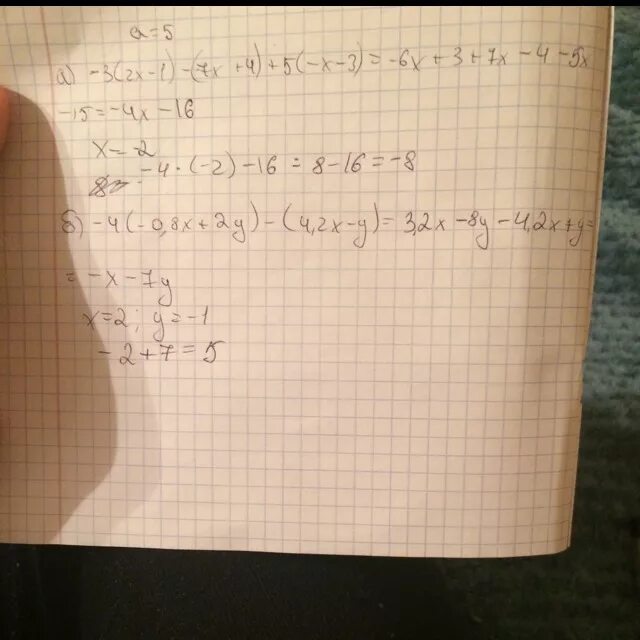 a=5
а) -3(2x-1)-(7x+4)+5(-x-3)=-6x+3+7x-4-5x
-15=-4x-16
x=-2
-4·(-2)-16=8-16=-8
б) -4(-0,8x+2y)-(4,2x-y)=3,2x-8y-4,2x+y=
=-x-7y
x=2; y=-1
-2+7=5